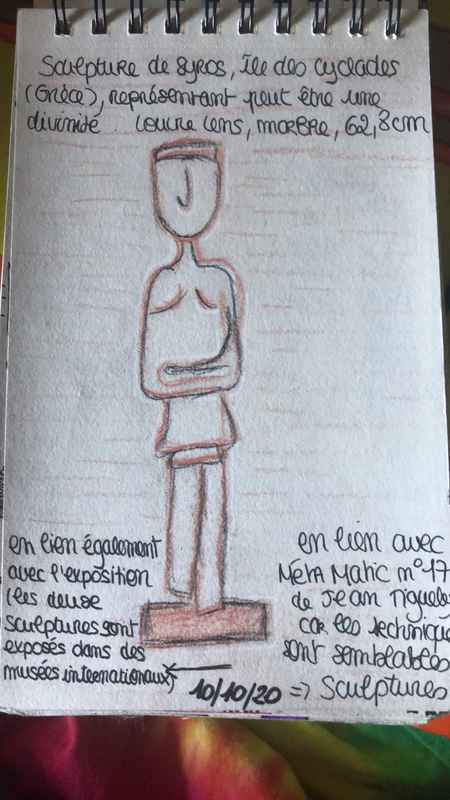 Sculpture de Syros, Île des cyclades
(Grèce), représentant peut être une
divinité. Louvre Lens, marbre, 62,8cm
en lien également
avec l'exposition
(les deux
sculptures sont
exposés dans des
musées internationaux)
en lien avec
Méta Matic n°17
de Jean Tinguely
car les technique
sont semblables
=> Sculptures
10/10/20